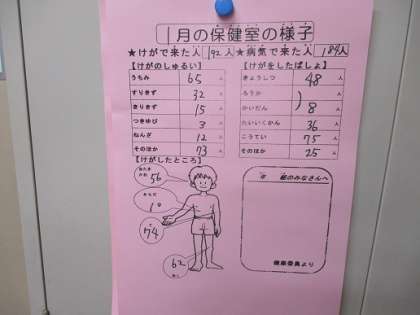 1月の保健室の様子
★けがで来た人 192人 ★病気で来た人 184人
【けがのしゅるい】
うちみ 65 人
すりきず 32 人
きりきず 15 人
つきゆび 3 人
ねんざ 12 人
そのほか 73 人
【けがをしたばしょ】
きょうしつ 48 人
ろうか
かいだん 8 人
たいいくかん 36 人
こうてい 75 人
そのほか 25 人
【けがしたところ】
あたま
かお 56
からだ
74
62
のみなさんへ
健康委員より